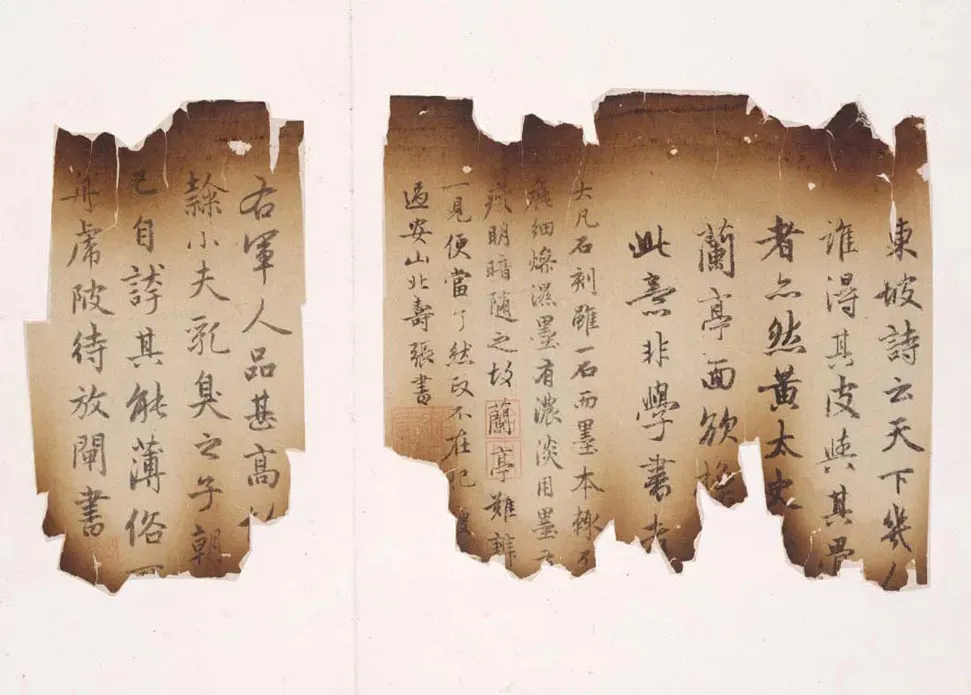 東坡詩云天下幾人
誰得其皮與其骨
者亦然黃太史
蘭亭面欲換
此意非學書者
大凡石刻雖一石而墨本輒不
麁細燥濕墨有濃淡用墨有
瘦明暗隨之故蘭亭難辨
一見便當了然政不在肥
過安山北壽張書
右軍人品甚高故
隸小夫乳臭之子朝
已自誇其能薄俗可
舟虜陂待放閘書